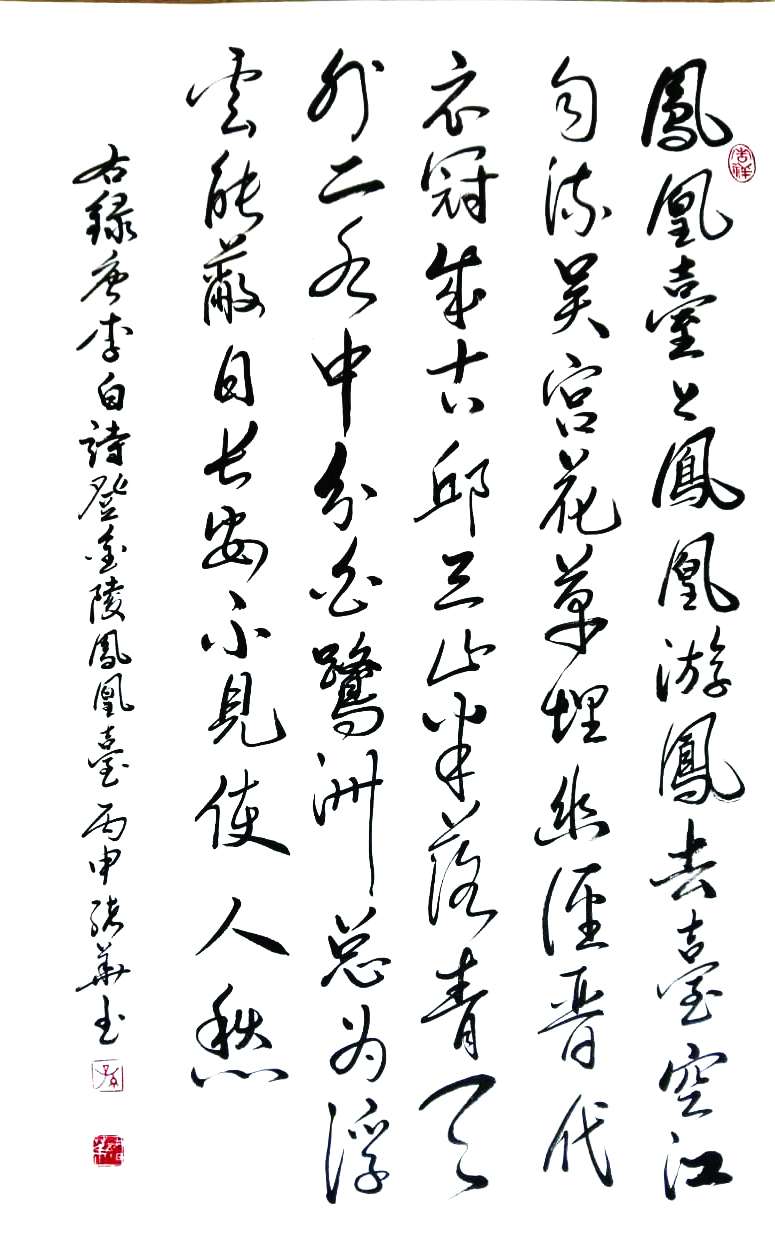 鳳凰臺上鳳凰游鳳去臺空江
自流吴宫花草埋幽徑晋代
衣冠成古邱三山半落青天
外二水中分白鷺洲总为浮
雲能蔽日长安不見使人愁
右録唐李白詩登金陵鳳凰臺丙申張華书
吉祥